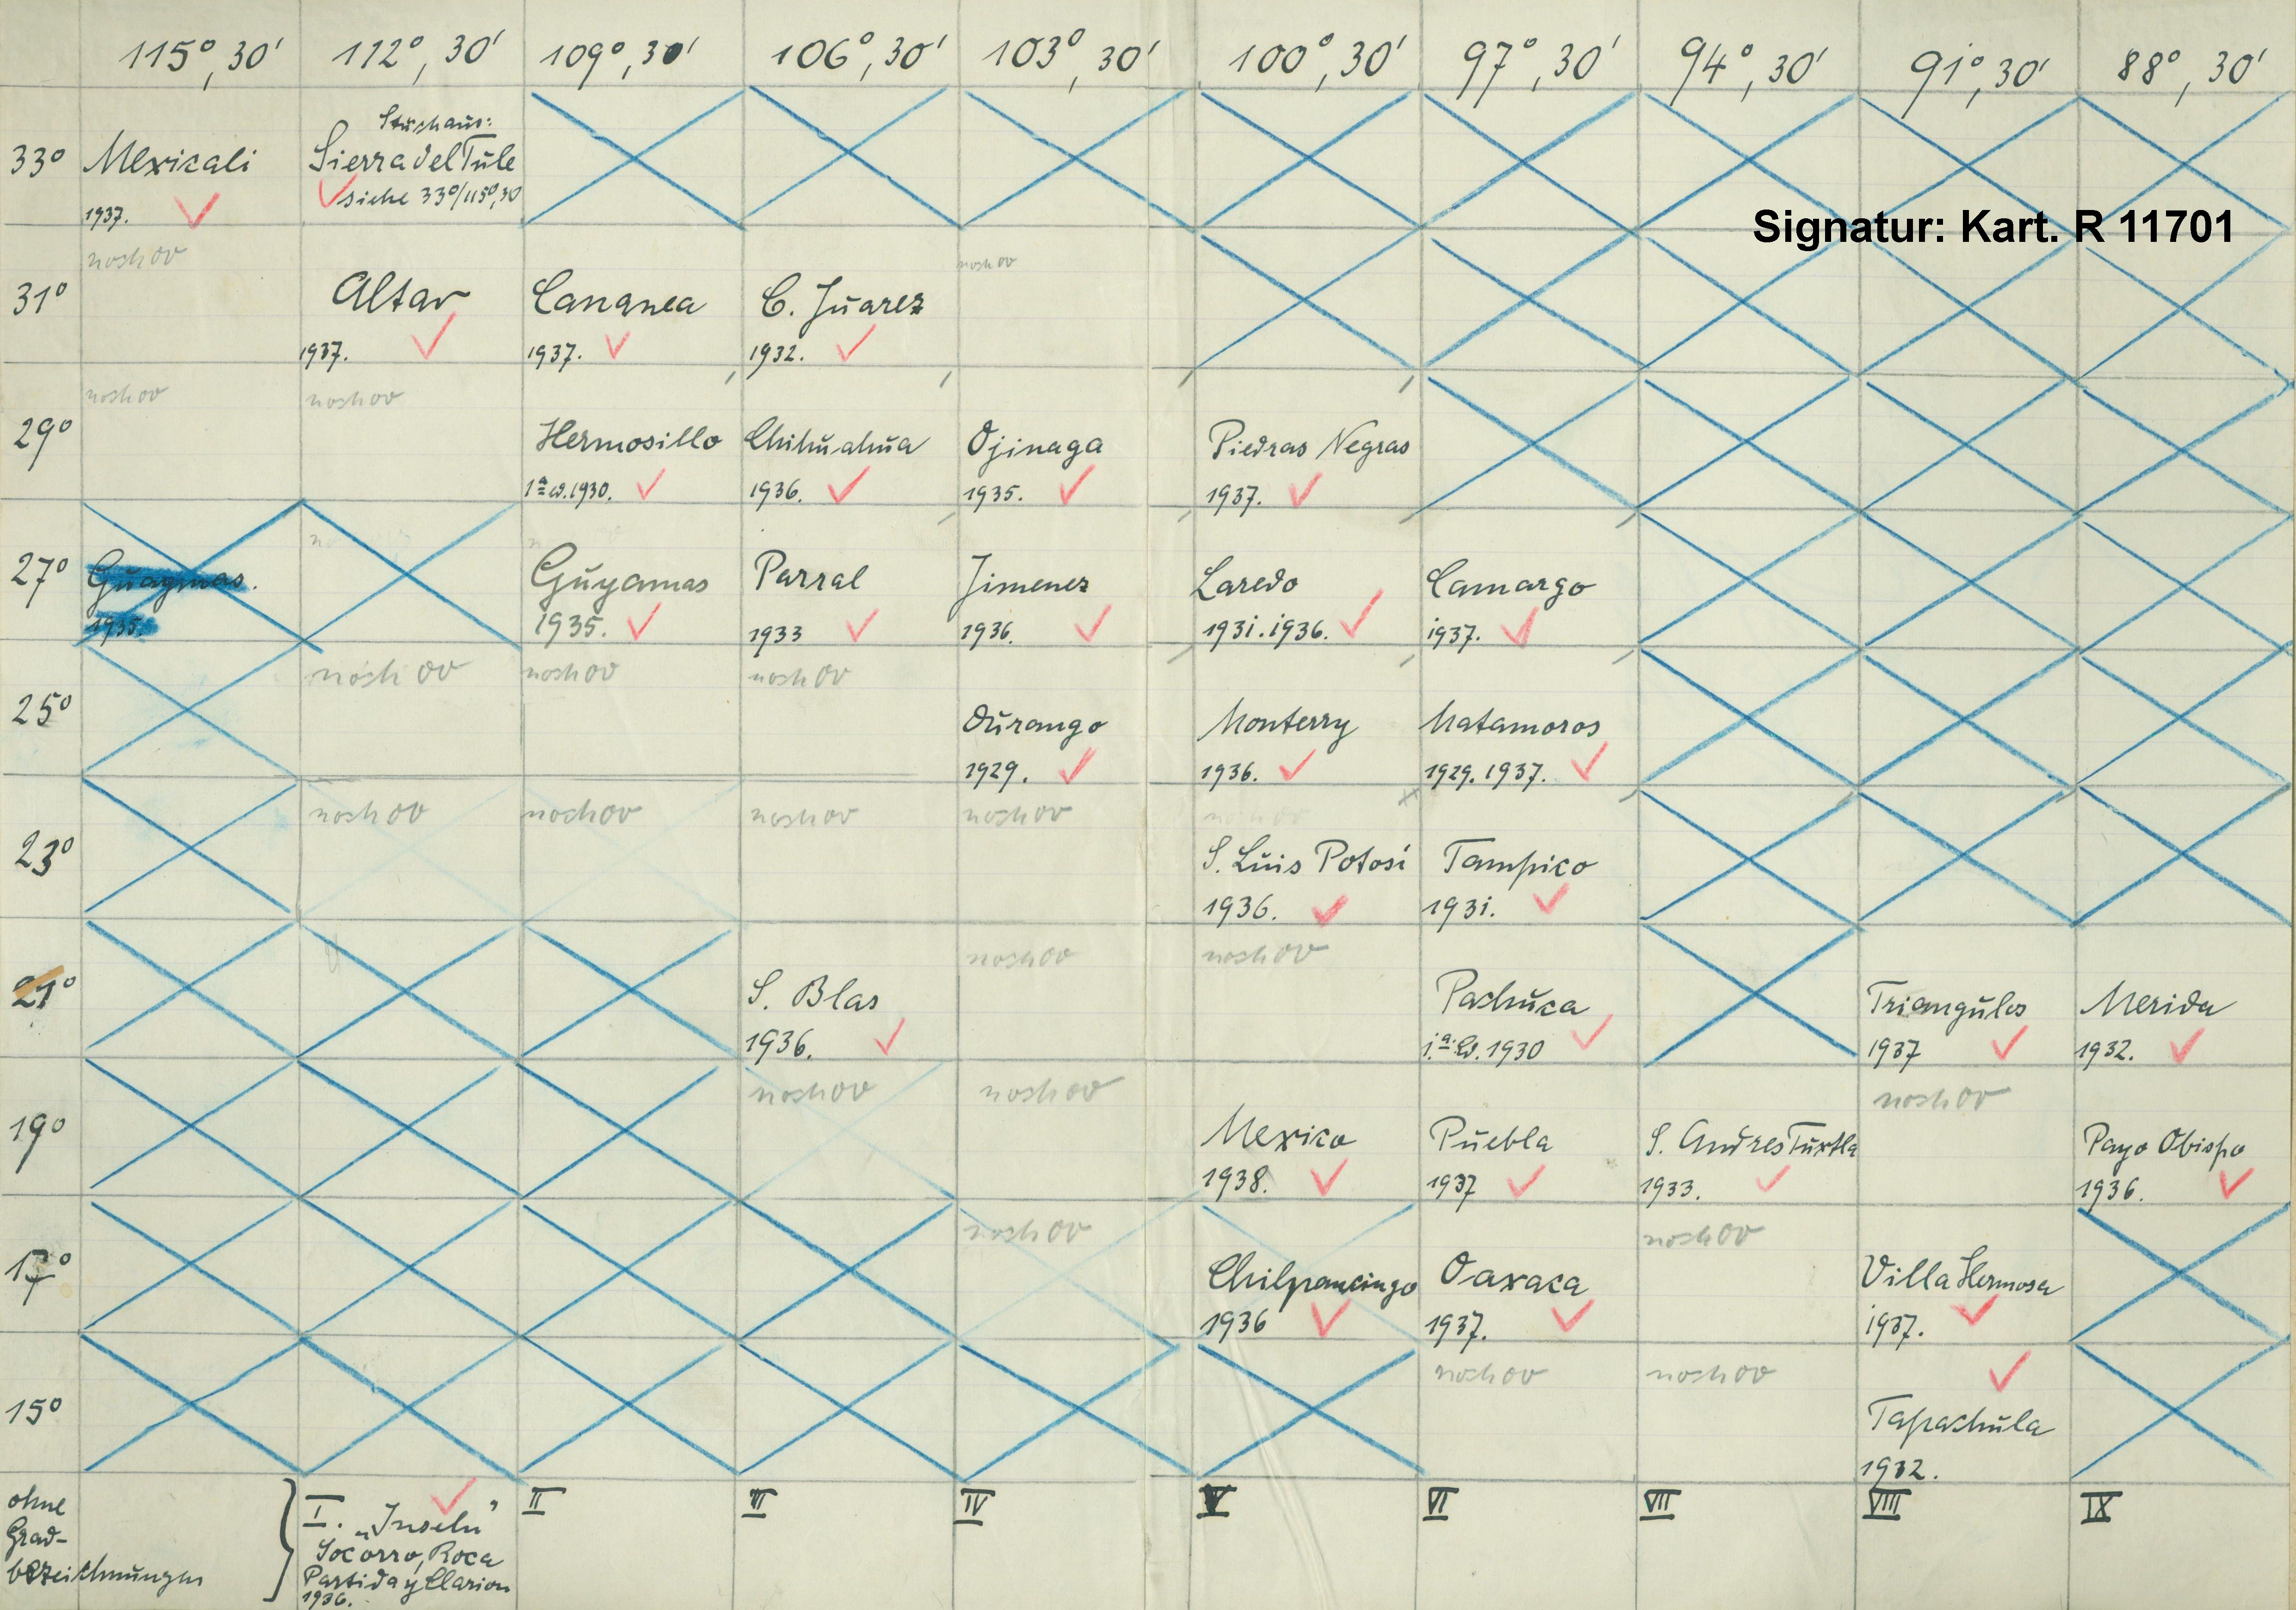 115°,30' 112°,30' 109°,30' 106°,30' 103°,30' 100°,30' 97°,30' 94°,30' 91°,30' 88°,30'
33° Mexicali
1937.
Sierra del Tule
siehe 33°/115°,30
Signatur: Kart. R 11701
noch ov
noch ov
31° Altar Cananea C. Juarez
1937. 1937. 1932.
noch ov noch ov
29° Hermosillo Chihuahua Ojinaga Piedras Negras
1ª Ed. 1930. 1936. 1935. 1937.
27° Guaymas. Guyamas Parral Jimenez Laredo Camargo
1935. 1935. 1933 1936. 1931. 1936. 1937.
noch ov noch ov noch ov
25° Durango Monterry Matamoros
1929. 1936. 1929. 1937.
noch ov noch ov noch ov noch ov noch ov
23° S. Luis Potosí Tampico
1936. 1931.
noch ov noch ov
21° S. Blas Pachuca Triangulos Merida
1936. 1ª Ed. 1930 1937 1932.
noch ov noch ov noch ov
19° Mexico Puebla S. Andres Tuxtla Payo Obispo
1938. 1937 1933. 1936.
noch ov noch ov
17° Chilpancingo Oaxaca Villa Hermosa
1936 1937. 1937.
noch ov noch ov
15° Tapachula
1932.
ohne
Grad-
bezeichnungen
I. „Inseln"
Socorro, Roca
Partida y Clarion
1936.
II III IV V VI VII VIII IX